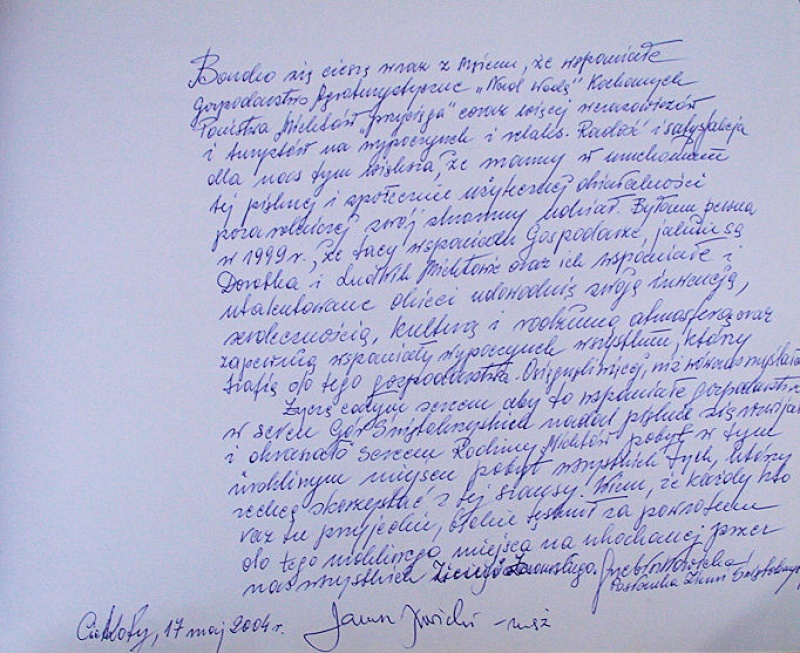 Bardzo się cieszę wraz z mężem, że wspaniałe
gospodarstwo Agroturystyczne „Nad Wodą” Kochanych
Państwa Michtów „przyciąga” coraz więcej wczasowiczów
i turystów na wypoczynek i relaks. Radość i satysfakcja
dla nas tym większa, że mamy w uruchomieniu
tej pięknej i społecznie użytecznej działalności
pozarolniczej swój skromny udział. Byłam pewna
w 1999 r., że tacy wspaniali Gospodarze, jakimi są
Dorotka i Ludwik Michtowie oraz ich wspaniałe i
utalentowane dzieci udowodnią swoją inwencją,
serdecznością, kulturą i rodzinną atmosferą oraz
zapewnią wspaniały wypoczynek wszystkim, którzy
trafią do tego gospodarstwa. Osiągnęli więcej, niż wówczas myślałam
Życzę całym sercem aby to wspaniałe gospodarstwo
w sercu Gór Świętokrzyskich nadal pięknie się rozwijało
i okraszało Sercem Rodziny Michtów pobyt w tym
urokliwym miejscu pobyt wszystkich tych, którzy
zechcą skorzystać z tej szansy. Wiem, że każdy kto
raz tu przyjedzie, będzie tęsknił za powrotem
do tego urokliwego miejsca na ukochanej przez
nas wszystkich
Posłanka Ziemi Świętokrzyskiej
Ciekoty, 17 maj 2004 r. - mąż